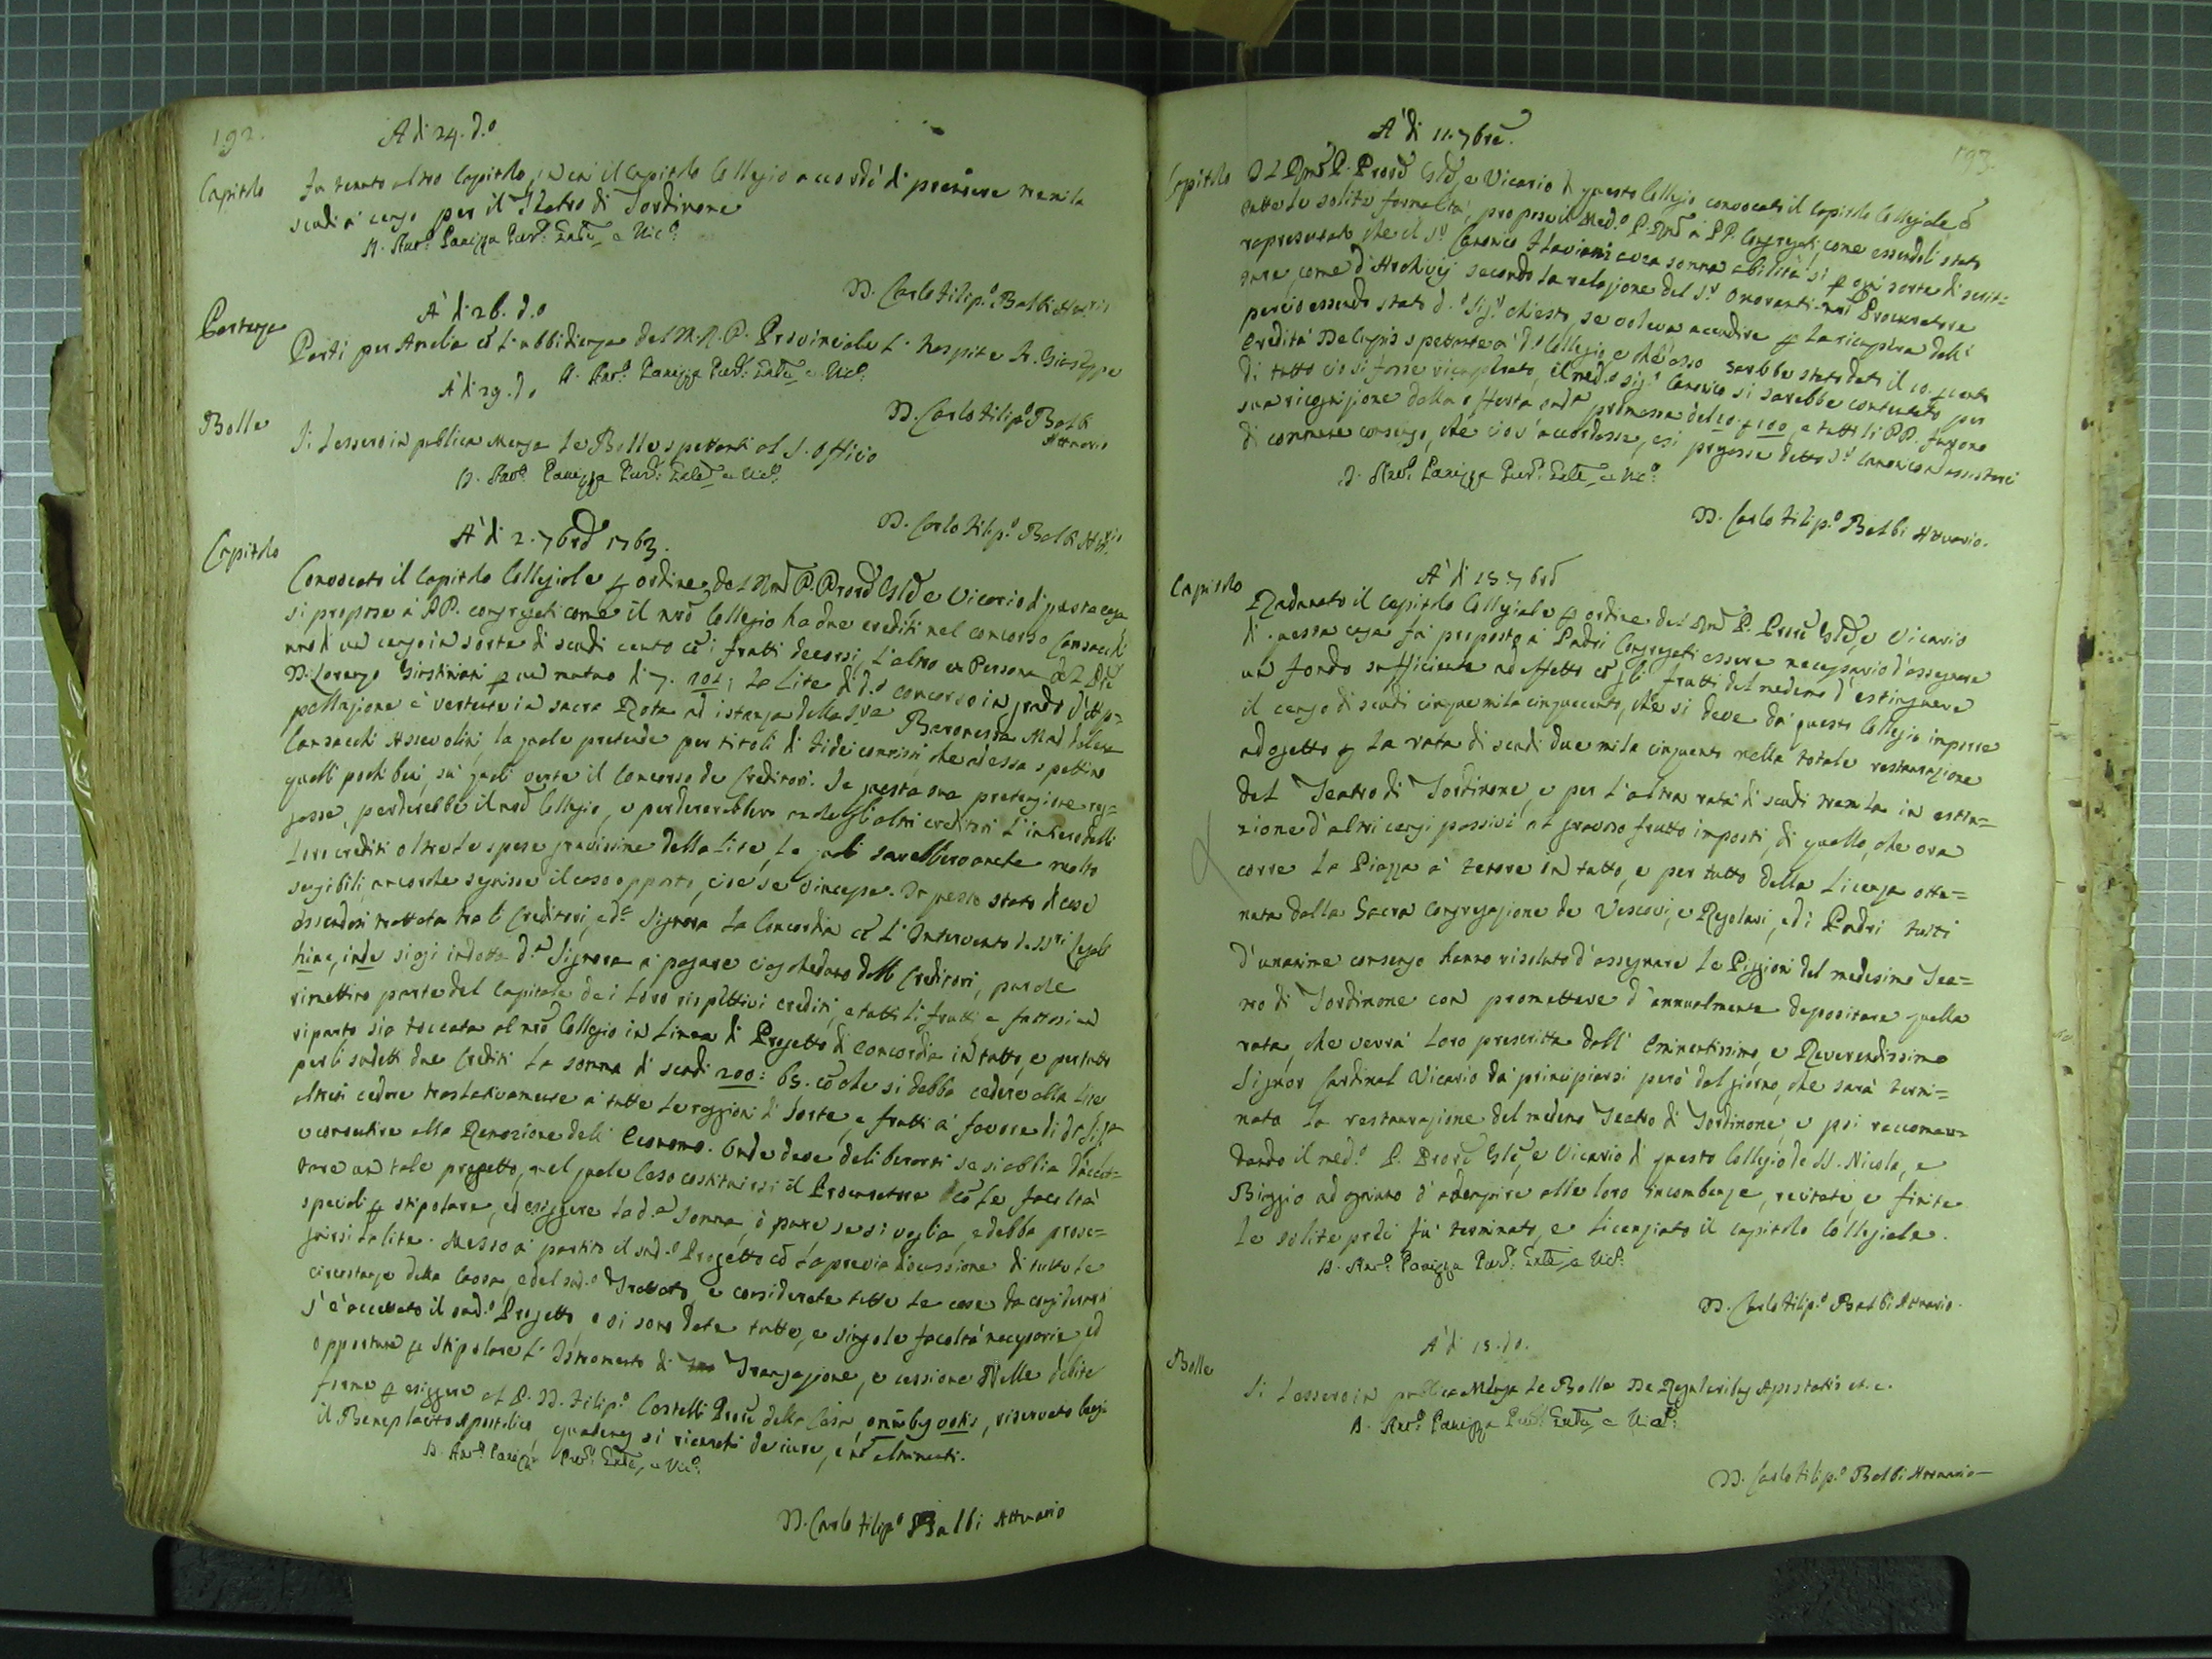 192.
A di 24. d.o
Capitolo Fu tenuto altro Capitolo, in cui il Capitolo Collegio accordò di prendere tremila
scudi a censo per il Teatro di Tordinone
D. Ant.o Panizza Prev.o e Vic.o
D. Carlo Filip.o Balbi Att.rio
A' di 26. d.o
Partenza Partì per Amelia cõ l'abbidienza del M.R.P. Provinciale l'hospite N. Giuseppe
D. Ant.o Panizza Prev.o e Vic.o
D. Carlo Filip.o Balbi
Attuario
A' di 29. d.o
Bolle Si lessero in publica mensa le Bolle spettanti al S. Offizio
D. Ant.o Panizza Prev.o e Vic.o
D. Carlo Filip.o Balbi Att.rio
A' di 2. 7brẽ 1763.
Capitolo Convocato il Capitolo Collegiale ꝑ ordine del P. Vicario di questa casa
si propose a PP. congregati come il nrõ Collegio ha due crediti nel concorso Cansacchi
uno di un censo in sorte di scudi cento cõ i frutti decorsi, l'altro in Persona
D. Lorenzo Giustiniani ꝑ un mutuo di 201; la lite di d.o concorso in grado d'Ap-
pellazione è vertente in sacra Rota ad istanza della Sig.ra Baronessa Madalena
Cansacchi Assevoliti, la quale pretende per titoli di fideicomissi, che ad essa spettino
quelli pochi beni, su quali verte il Concorso de Creditori. Se questa sua pretenzione reg-
gesse, perderebbe il nrõ Collegio, e perderebbero anche gli altri creditori l'intero delli
loro crediti oltre le spese gravissime della lite, le quali sarebbero anche molto
sensibili, ancorche seguisse il caso opposto, cioe se vincesse. In questo stato di cose
essendosi trattata tra li Creditori, e d.a Signora la Concordia cõ l'Intervento de SS.ri Legali
hinc, inde si è indotta d.a Signora a pagare ciascheduno delli Creditori, purche
rimettino parte del Capitale dei loro rispettivi crediti, e tutti li frutti e fattosi un
riparto sia toccata al nrõ Collegio in linea di Progetto di Concordia in tutto, e per tutto
per li sudetti due Crediti la somma di scudi 200: 65. cõ che si debba cedere alla lite
altresì cedere traslativamente a tutte le raggioni di sorte, e frutti a favore di d.a Sig.ra
e consentire alla Remozione dell' Economo. Onde deve deliberarsi se si abbia d'accet-
tare un tale progetto, nel quale caso costituirsi il Procuratore cõ le facoltà
speciali ꝑ stipolare, ed esiggere la d.a somma, ò pure se si voglia, e debba prose-
guirsi la lite. Messo a partito il sud.o Progetto cõ la previa discussione di tutte le
circostanze della Causa, e del sud.o Trattato, e considerate tutte le cose da considerarsi
s'è accettato il sud.o Progetto, e si sono date tutte, e singole facoltà necessarie, ed
opportune ꝑ stipolare l'Istromento di Transazione, e cessione Nelle debite
forme ꝑ esiggere al P. D. Filip.o Castelli Procũ della Casa, omnibus votis, riservato
il Beneplacito Apostolico, quatenus si ricerchi de iure, e nõ altrimenti.
D. Ant.o Panizza Prev.o e Vic.o
D. Carlo Filip.o Balbi Attuario
193.
A' di 11. 7brẽ.
Capitolo Il P. e Vicario di questo Collegio convocato il Capitolo Collegiale cõ
tutte le solite formalità, propose il Med.o P. a PP. Congregati come essendoli stato
rapresentato che il S.r Canonico Flaviani avea somma abilità si ꝑ ogni sorte di scrit-
ture, come d'Archivij secondo la relazione del S.r Onoranti nrõ Procuratore
perciò essendo stato d.o Sig.r chiesto, se voleva accudire ꝑ la ricupera dell'
Eredità De Cupis spettante a d.o Collegio e che ad esso sarebbe stato dato il 10. ꝑ cento
di tutto ciò si fosse ricuperato, il med.o Sig.r Canonico si sarebbe contentato per
sua ricognizione della offerta sud.a promessa del 10 ꝑ 100, e tutti li PP. furono
di commune consenso, che ciò s'accordasse, e si pregasse detto S.r Canonico ad assisterci
D. Ant.o Panizza Prev.o e Vic.o
D. Carlo Filip.o Balbi Attuario.
A' di 15 7brẽ
Capitolo Radunato il Capitolo Collegiale ꝑ ordine del P. e Vicario
di questa casa fu proposto a Padri Congregati essere necessario d'assegnare
un fondo sufficiente ad effetto cõ gli frutti del medemo d'estinguere
il censo di scudi cinque mila cinquecento, che si deve da questo Collegio imporre
ad ogetto ꝑ la rata di scudi due mila cinquento nella totale restaurazione
del Teatro di Tordinone, e per l'altra rata di scudi tremila in estin-
zione d'altri censi passivi a gravoso frutto imposti, di quello, che ora
corre la Piazza a tenore in tutto, e per tutto della licenza otte-
nuta dalla Sacra Congregazione de Vescovi, e Regolari, ed i Padri tutti
d'unanime consenso hanno risoluto d'assegnare le Piggioni del medesimo Tea-
tro di Tordinone con promettere d'annualmente depositare quella
rata, che verrà loro prescritta dall' Eminentissimo, e Reverendissimo
Signor Cardinal Vicario da principiarsi però dal giorno, che sarà termi-
nata la restaurazione del medemo Teatro di Tordinone, e poi raccoman-
dando il med.o P. e Vicario di questo Collegio de SS. Nicola, e
Biaggio ad ogniuno d'adempire alle loro incombenze, recitate, e finite
le solite preci fu terminato, e licenziato il capitolo Collegiale.
D. Ant.o Panizza Prev.o e Vic.o
D. Carlo Filip.o Balbi Attuario.
A' di 18. d.o.
Bolle Si lessero in publica Mensa le Bolle De Regularibus Apostatis et c.
D. Ant.o Panizza Prev.o e Vic.o
D. Carlo Filip.o Balbi Attuario